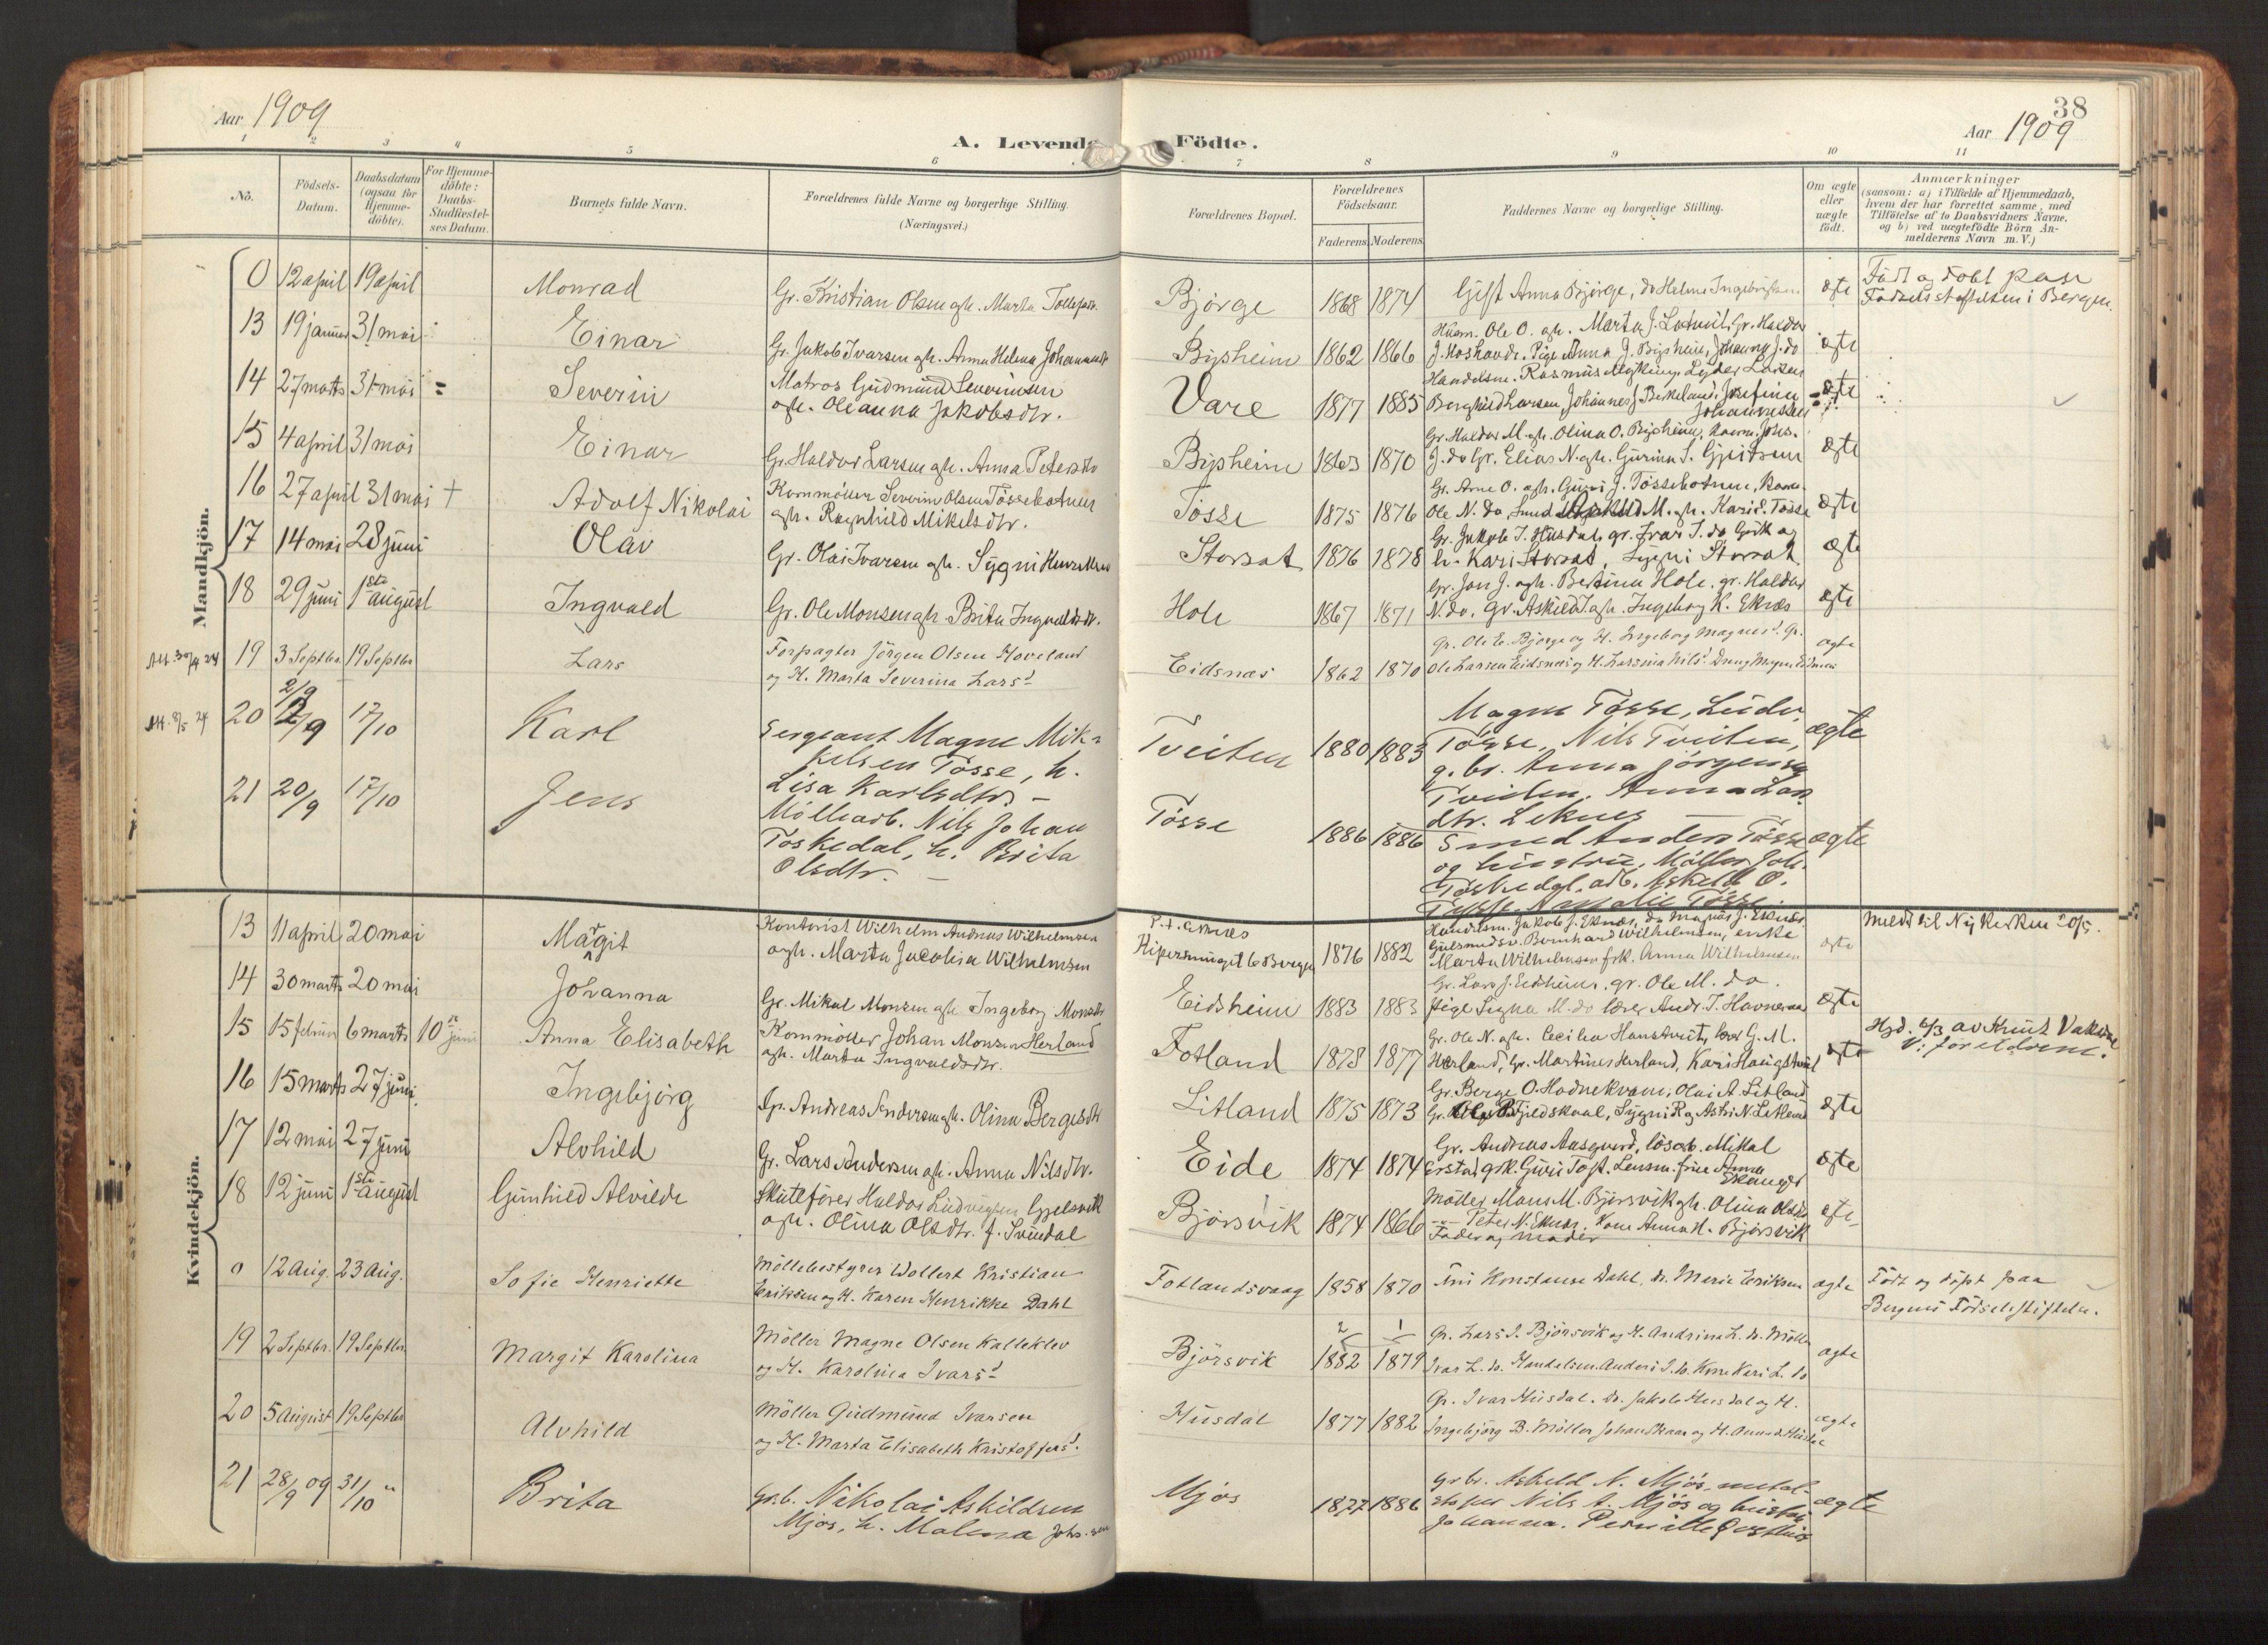 Aar 1909
A. Levende Födte.
38
Aar 1909
1 2 3 4 5 6 7 8 9 10 11
No.
Födsels-Datum.
Daabsdatum (ogsaa for Hjemmedöbte).
For Hjemmedöbte: Daabs-Stadfæstelses Datum.
Barnets fulde Navn.
Forældrenes fulde Navne og borgerlige Stilling. (Næringsvei.)
Forældrenes Bopæl.
Forældrenes Födselsaar.
Faderens Moderens
Faddernes Navne og borgerlige Stilling.
Om ægte eller uægte födt.
Anmærkninger
(saasom: a) i Tilfælde af Hjemmedaab, hvem der har forrettet samme, med Tilföielse af to Daabsvidners Navne, og b) ved uægtefödte Börn Anmelderens Navn m. V.)
Mandkjön.
0 12 april 19 april Monrad Gr. Kristian Olsen ogh. Marta Bjørge 1868 1874 Gift Anna Bjørge, do Helene ægte Født og døbt paa
Fødselsstiftelsen i Bergen
13 19 januar 31 mai Einar Gr. Jakob Ivarsen ogh. Anna Helena Bysheim 1862 1866 Husm. Ole O. ogh. Marta J.
Pige Anna J. Bysheim, Johanna J. do ægte
14 27 marts 31 mai Severin Matros Gudmund Severinsen
ogh. Oleanna Jakobsdtr. Vare 1877 1885 Handelsm. Rasmus
Larsen, Johannes J. Birkeland, Josefine
Johannessen ægte
15 4 april 31 mai Einar Gr. Haldor Larsen ogh. Anna Petersdtr Bysheim 1863 1870 Gr. Haldor M. ogh. Olina O. Bysheim,
J. do Gr. Elias N. ogh. Gurina S. ægte
16 27 april 31 mai † Adolf Nikolai Kornmøller Severin Olsen Tössebotnen
ogh. Ragnhild Mikelsdtr. Tösse 1875 1876 Gr. Arne O. ogh. Guri J. Tössebotnen,
Ole N. do, Smed M. ogh. Kari S. Tösse ægte
17 14 mai 28 juni Olav Gr. Olai Ivarsen ogh. Sygni Storsat 1876 1878 Gr. Jakob I. Husdal, gr. Ivar I. do
h. Kari Storsat, Sygni Storsat ægte
18 29 juni 1ste august Ingvald Gr. Ole Monsen ogh. Brita Ingvaldsdtr. Hole 1867 1871 Gr. Jon J. ogh. Bertina Hole, gr. Haldor
N. do, gr. Askild J. ogh. Ingeborg K. Eknæs ægte
Att. 30/4 24
19 3 Septbr. 19 Septbr Lars Forpagter Jörgen Olsen Hoveland
og H. Marta Severina Larsd. Eidsnæs 1862 1870 Gr. Ole E. Bjørge og H. Ingeborg Magnesd. Gr.
Ole Larsen Eidsnæs og H. Larsina Nilsd. ægte
Att. 8/5 24
20 17/10 Karl Sergeant Magne Mik-
kelsen Tösse, h.
Lisa Karlsdtr. – Tveiten 1880 1883 Magne Tösse,
Tösse, Nils Tveiten,
g. br. Anna
Tveiten, Anna
dtr. Leknes – ægte
21 20/9 17/10 Jens Möllearb. Nils Johan
Toskedal, h. Brita
Olsdtr. – Tösse 1886 1886 Smed Anders Tösse
og hustru, Möller Joh.
Toskedal, arb. Askild O.
Tösse, Nathalie Tösse. ægte
Kvindekjön.
13 11 april 20 mai Margit Kontorist Wilhelm Andreas Wilhelmsen
ogh. Marta Jacobia Wilhelmsen P.t. Eknæs
6 Bergen 1876 1882 Handelsm. Jakob J. Eknæs, do Magnus J. Eknæs,
Gulsmedsv. Bernhard Wilhelmsen, enke
Marta Wilhelmsen, frk. Anna Wilhelmsen ægte Meldt til Nykirken 20/5.
14 30 marts 20 mai Johanna Gr. Mikal Monsen ogh. Ingeborg Monsdtr Eidsheim 1883 1883 Gr. Lars J. Eidsheim, gr. Ole M. do.
Pige Signe M. do lærer Andr. J. Havneraas ægte
15 15 februar 6 marts 10de juni Anna Elisabeth Kornmøller Johan Monsen Herland
ogh. Marta Ingvaldsdtr. Fotland 1878 1877 Gr. Ole N. ogh. Cecilia
Herland, Gr. Martinus Herland, Kari ægte Hjd. 6/3 av Knut Vaksdal
V: foreldrene.
16 15 marts 27 juni. Ingebjörg Gr. Andreas Andersen ogh. Olina Bergesdtr Litland 1875 1873 Gr. Berge O. Hodnekvam, Olai A. Litland
Fjeldskaal, Sygni R. og Astri N. Litland ægte
17 12 mai 27 juni Alvhild Gr. Lars Andersen ogh. Anna Nilsdtr. Eide 1874 1874 Gr. Andreas Aasgaard, lösarb. Mikal
Guri Toft, Lensm. frue Anna
Ekanger ægte
18 12 juni 1ste august Gunhild Alvilde Skuteförer Haldor Ludvigsen Gjelsvik
ogh. Olina Olsdtr. f. Svendal Bjørsvik 1874 1866 Möller Mons M. Bjørsvik gh. Olina
Peter N. Eknæs, Kone Anna H. Bjørsvik
Fader og moder ægte
0 12 Aug. 23 Aug. Sofie Henriette Möllebestyrer Wollert Kristian
Eriksen og H. Karen Henrikke Dahl Fotlandsvaag 1858 1870 Konstanse Dahl, do. Marie Eriksen ægte Födt og döpt paa
Bergens Födselsstiftelse.
19 2 Septbr. 19 Septbr. Margit Karolina Möller Magne Olsen Kalleklev
og H. Karolina Ivarsd. Bjørsvik 1882 1879 2 1 Gr. Lars I. Bjørsvik og H. Andrina L. do. Möller
Ivar L. do. Handelsm. Anders I. do. Kone Kari L. do ægte
20 5 August 19 Septbr Alvhild Möller Gudmund Ivarsen
og H. Marta Elisabeth Kristoffersd. Husdal 1877 1882 Gr. Ivar Husdal. Do. Jakob Husdal og H.
Ingebjörg B. Möller Johan Skaar og H. Anna Husdal ægte
21 28/9 09 31/10 " Brita Grb. Nikolai Askildsen
Mjös, h. Malena Johs. Mjös 1877 1886 Grbr. Askild N. Mjös,
Nils A. Mjös og hustru
Johanna. Pernille ægte